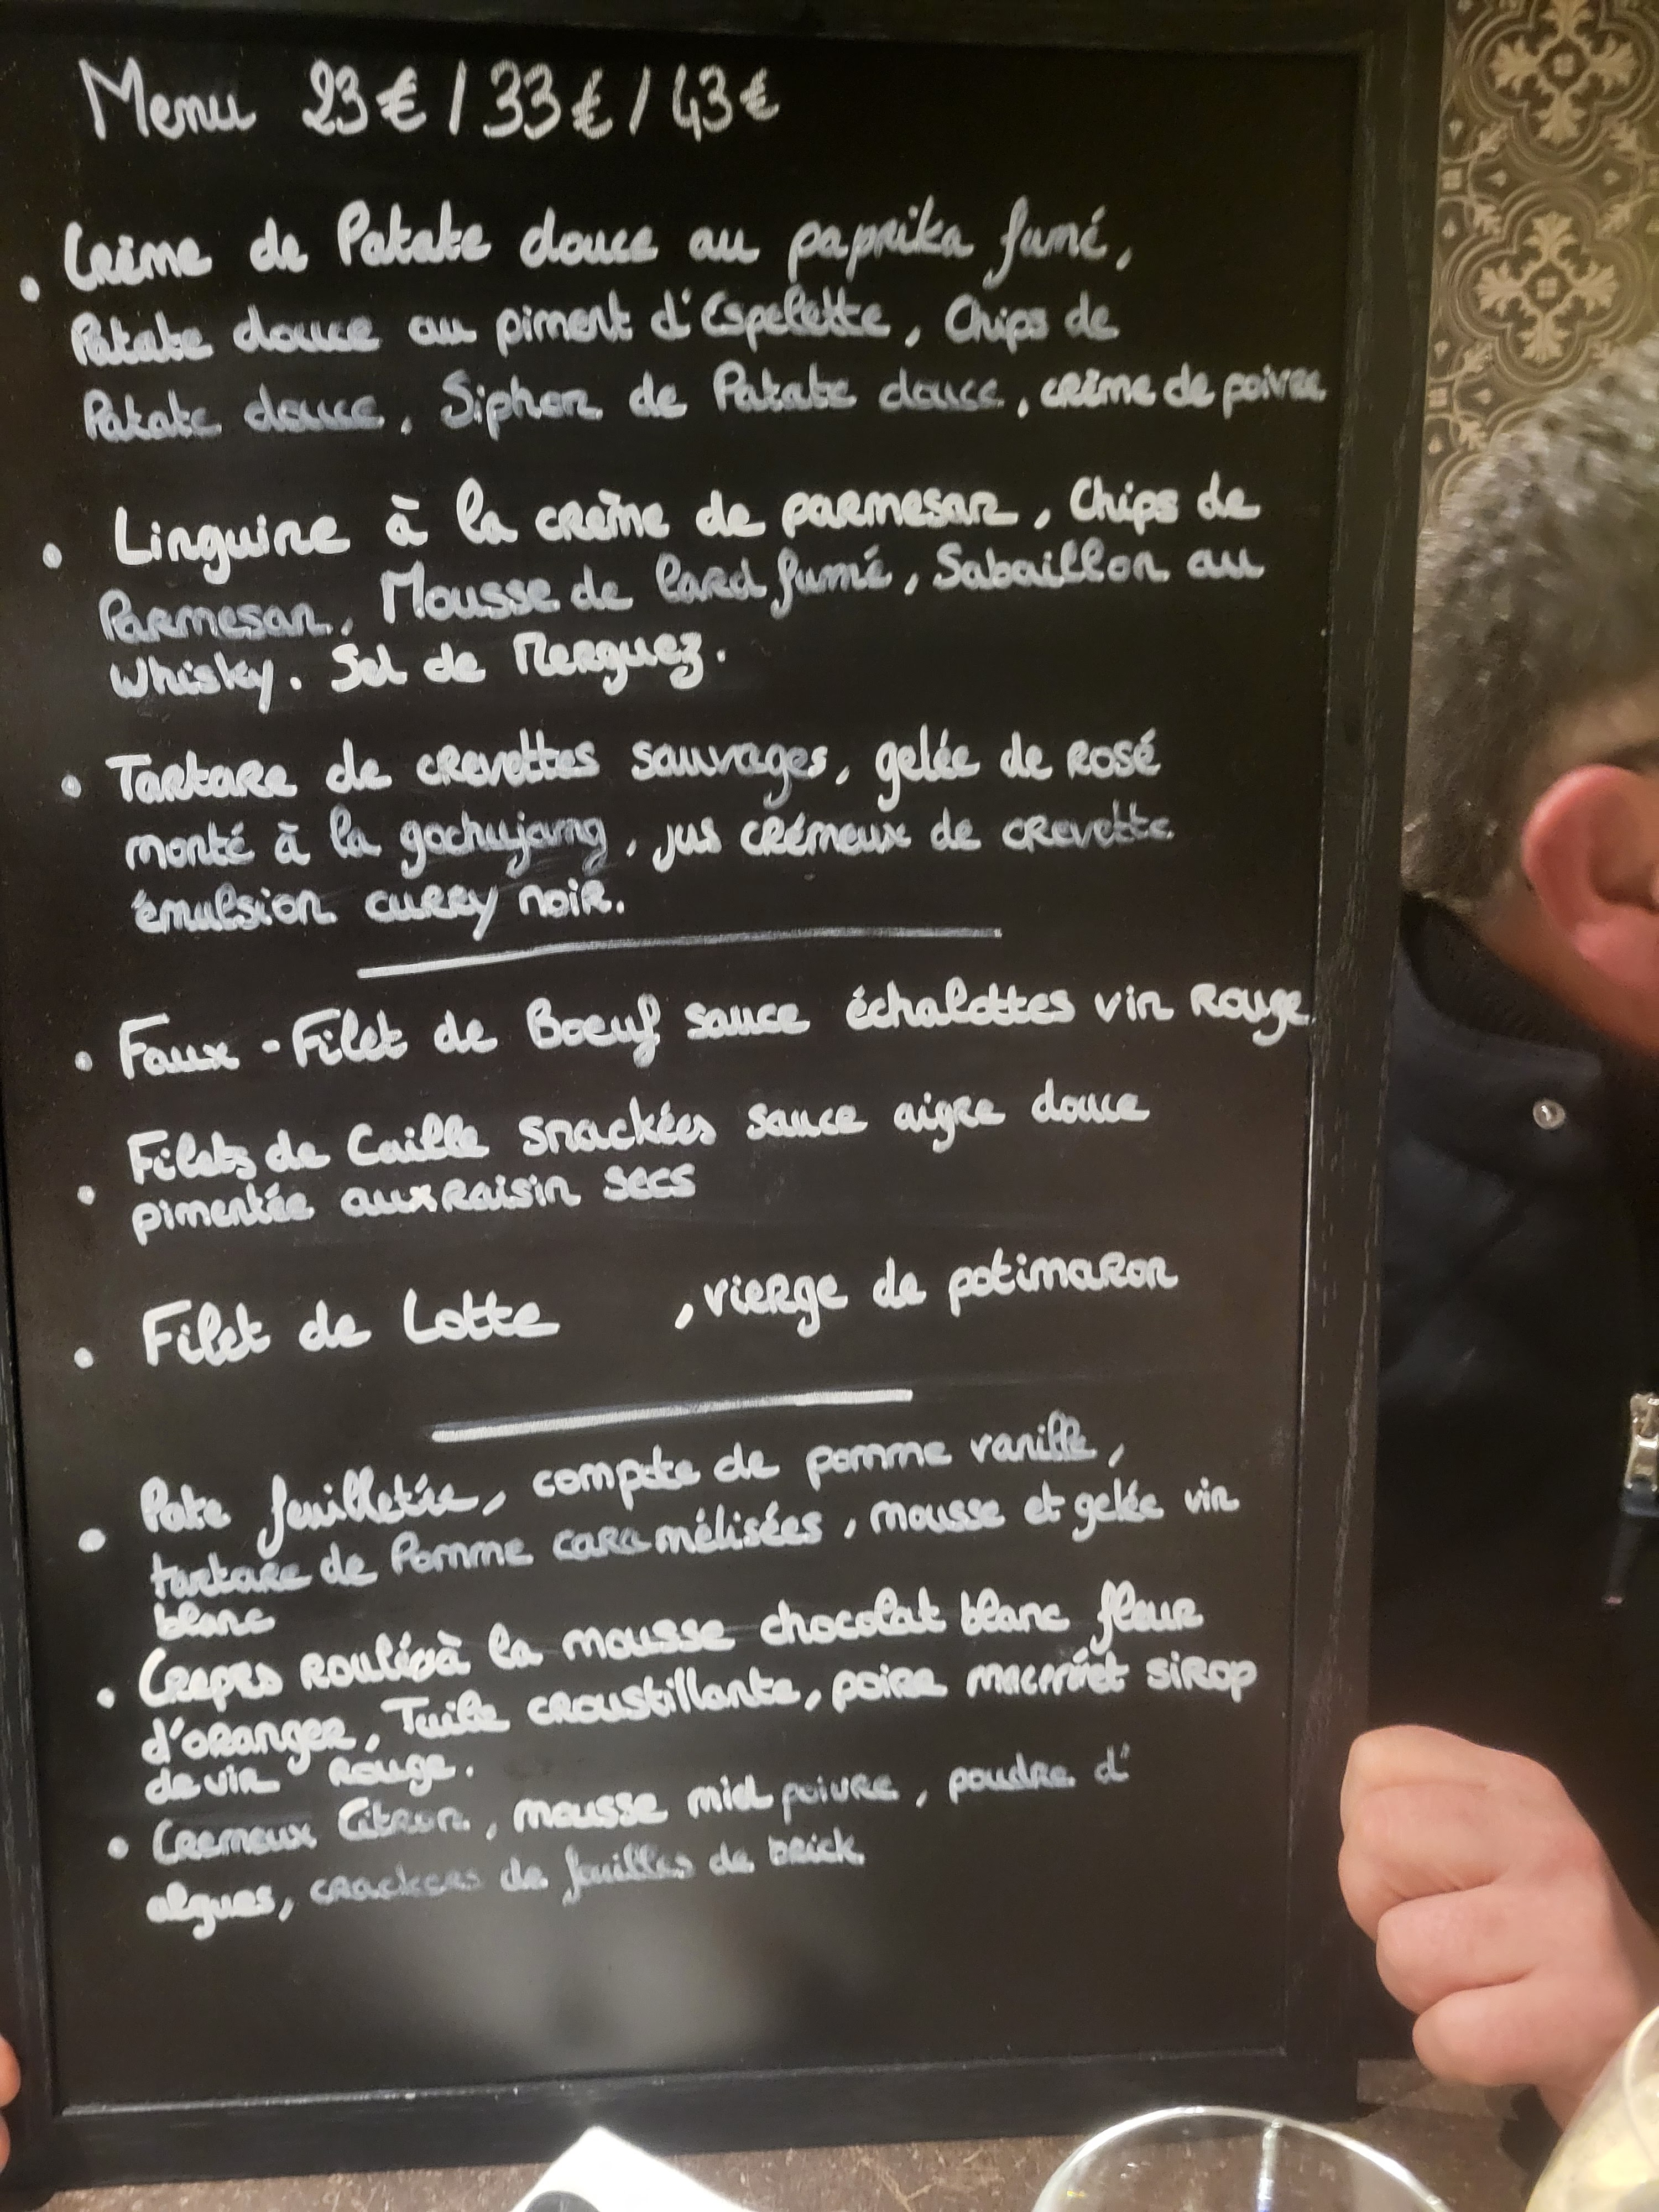 Menu 23€ / 33€ / 43€
• Crème de Patate douce au paprika fumé,
Patate douce au piment d'Espelette, Chips de
Patate douce, Siphon de Patate douce, crème de poivre
• Linguine à la crème de parmesan, Chips de
Parmesan, Mousse de lard fumé, Sabaillon au
Whisky. Sel de Merguez.
• Tartare de crevettes sauvages, gelée de rosé
monté à la gochujang, jus crémeux de crevette
émulsion curry noir.
• Faux-Filet de Boeuf sauce échalottes vin rouge
• Filets de Caille snackées sauce aigre douce
pimentée aux raisin secs
• Filet de Lotte , vierge de potimaron
• Pate feuilletée, compote de pomme vanille,
tartare de Pomme caramélisées, mousse et gelée vin
blanc
• Crepes à la mousse chocolat blanc fleur
d'oranger, Tuile croustillante, poire sirop
de vin rouge.
• Cremeux Citron, mousse miel poivre, poudre d'
algues, crackers de feuilles de brick